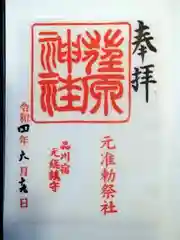 奉拝
元准勅祭社
荏原
神社
品川宿
鎮守
令和四年六月
日